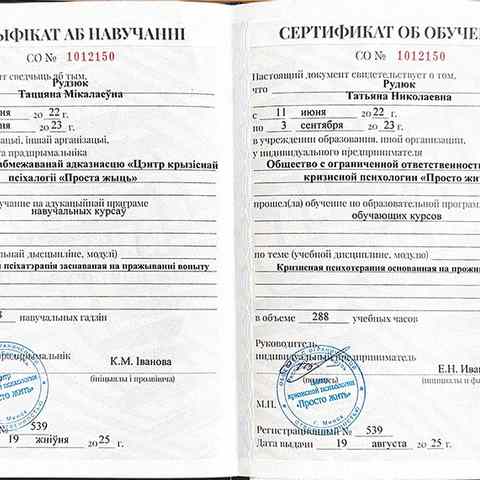 ЫФІКАТ АБ НАВУЧАННІ
СО № 1012150
нт сведчыць аб тым,
Рудзюк
Таццяна Мікалаеўна
ня 2022 г.
ня 2023 г.
ацыі, іншай арганізацыі,
га прадпрымальніка
абмежаванай адказнасцю «Цэнтр крызіснай
псіхалогіі «Проста жыць»
учанне на адукацыйнай праграме
навучальных курсаў
льнай дысцыпліне, модулі)
псіхатэрапія заснаваная на пражыванні вопыту
8 навучальных гадзін
прадпрымальнік
К.М. Іванова
(ініцыялы і прозвішча)
кризисной психологии
«Просто жить»
г. Минск
№ 539
19 жніўня 2025 г.
СЕРТИФИКАТ ОБ ОБУЧЕ
СО № 1012150
Настоящий документ свидетельствует о том,
что Рудюк
Татьяна Николаевна
с 11 июня 2022 г.
по 3 сентября 2023 г.
в учреждении образования, иной организации,
у индивидуального предпринимателя
Общество с ограниченной ответственность
кризисной психологии «Просто жи
прошел(ла) обучение по образовательной програм
обучающих курсов
по теме (учебной дисциплине, модулю)
Кризисная психотерапия основанная на прожи
в объеме 288 учебных часов
Руководитель,
индивидуальный предприниматель
Е.Н. Иван
(подпись)
(инициалы и фа
кризисной психологии
«Просто жить»
г. Минск
М.П.
Регистрационный № 539
Дата выдачи 19 августа 2025 г.